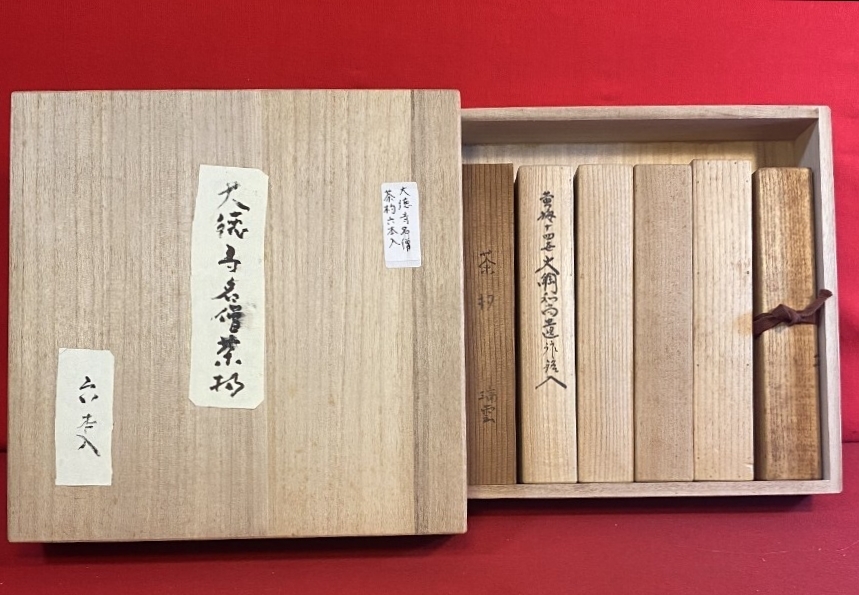 大徳寺名僧茶杓
六本入
大徳寺名僧
茶杓六本入
茶杓
瑞雲
黄梅十四世大綱和尚遺作語入